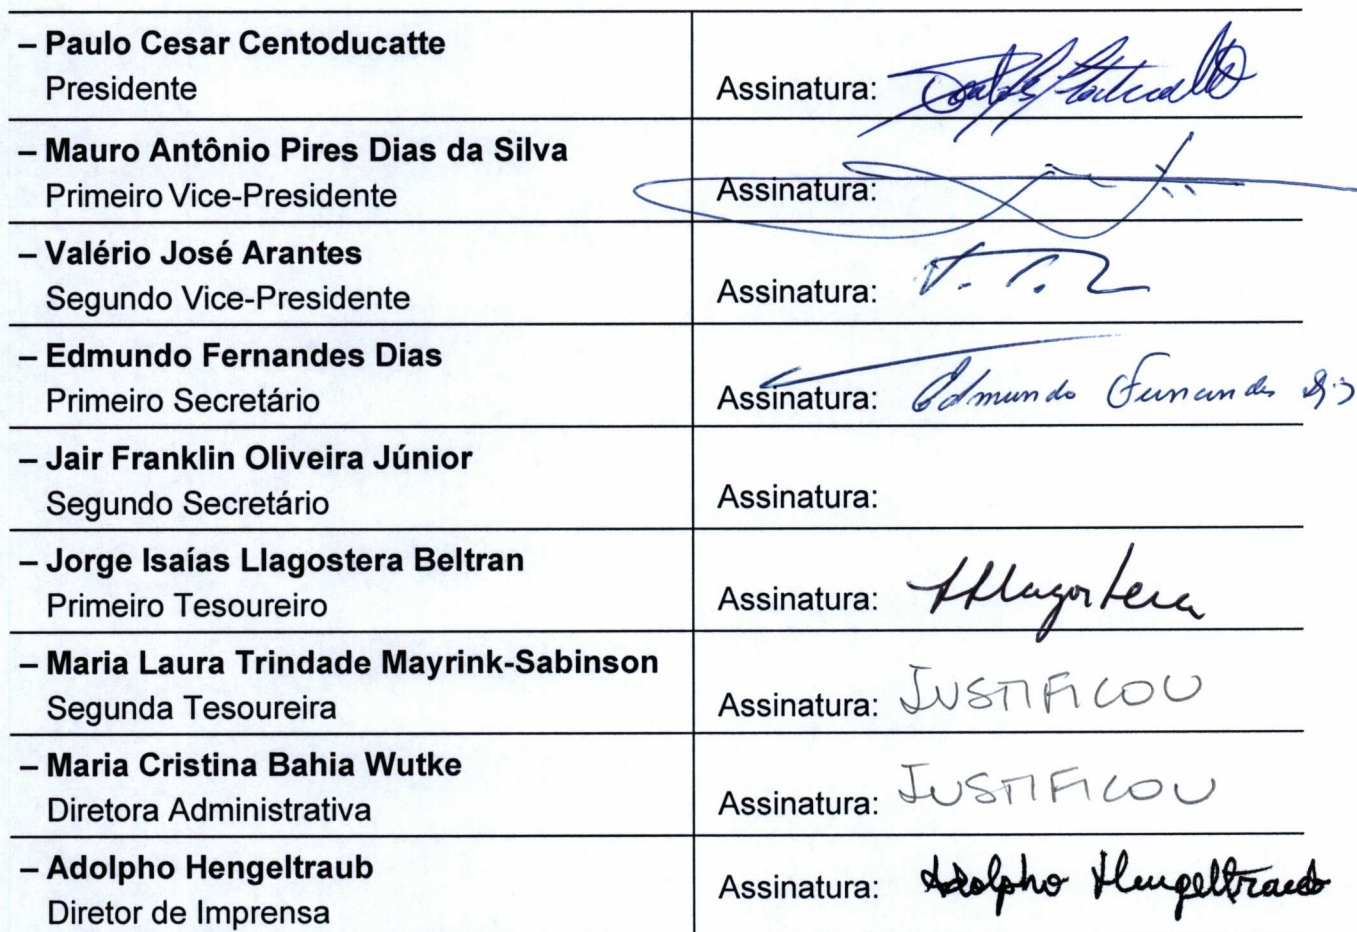 – Paulo Cesar Centoducatte
Presidente
Assinatura:
– Mauro Antônio Pires Dias da Silva
Primeiro Vice-Presidente
Assinatura:
– Valério José Arantes
Segundo Vice-Presidente
Assinatura:
– Edmundo Fernandes Dias
Primeiro Secretário
Assinatura: Edmundo Fernandes Dias
– Jair Franklin Oliveira Júnior
Segundo Secretário
Assinatura:
– Jorge Isaías Llagostera Beltran
Primeiro Tesoureiro
Assinatura: Llagostera
– Maria Laura Trindade Mayrink-Sabinson
Segunda Tesoureira
Assinatura: JUSTIFICOU
– Maria Cristina Bahia Wutke
Diretora Administrativa
Assinatura: JUSTIFICOU
– Adolpho Hengeltraub
Diretor de Imprensa
Assinatura: Adolpho Hengeltraub